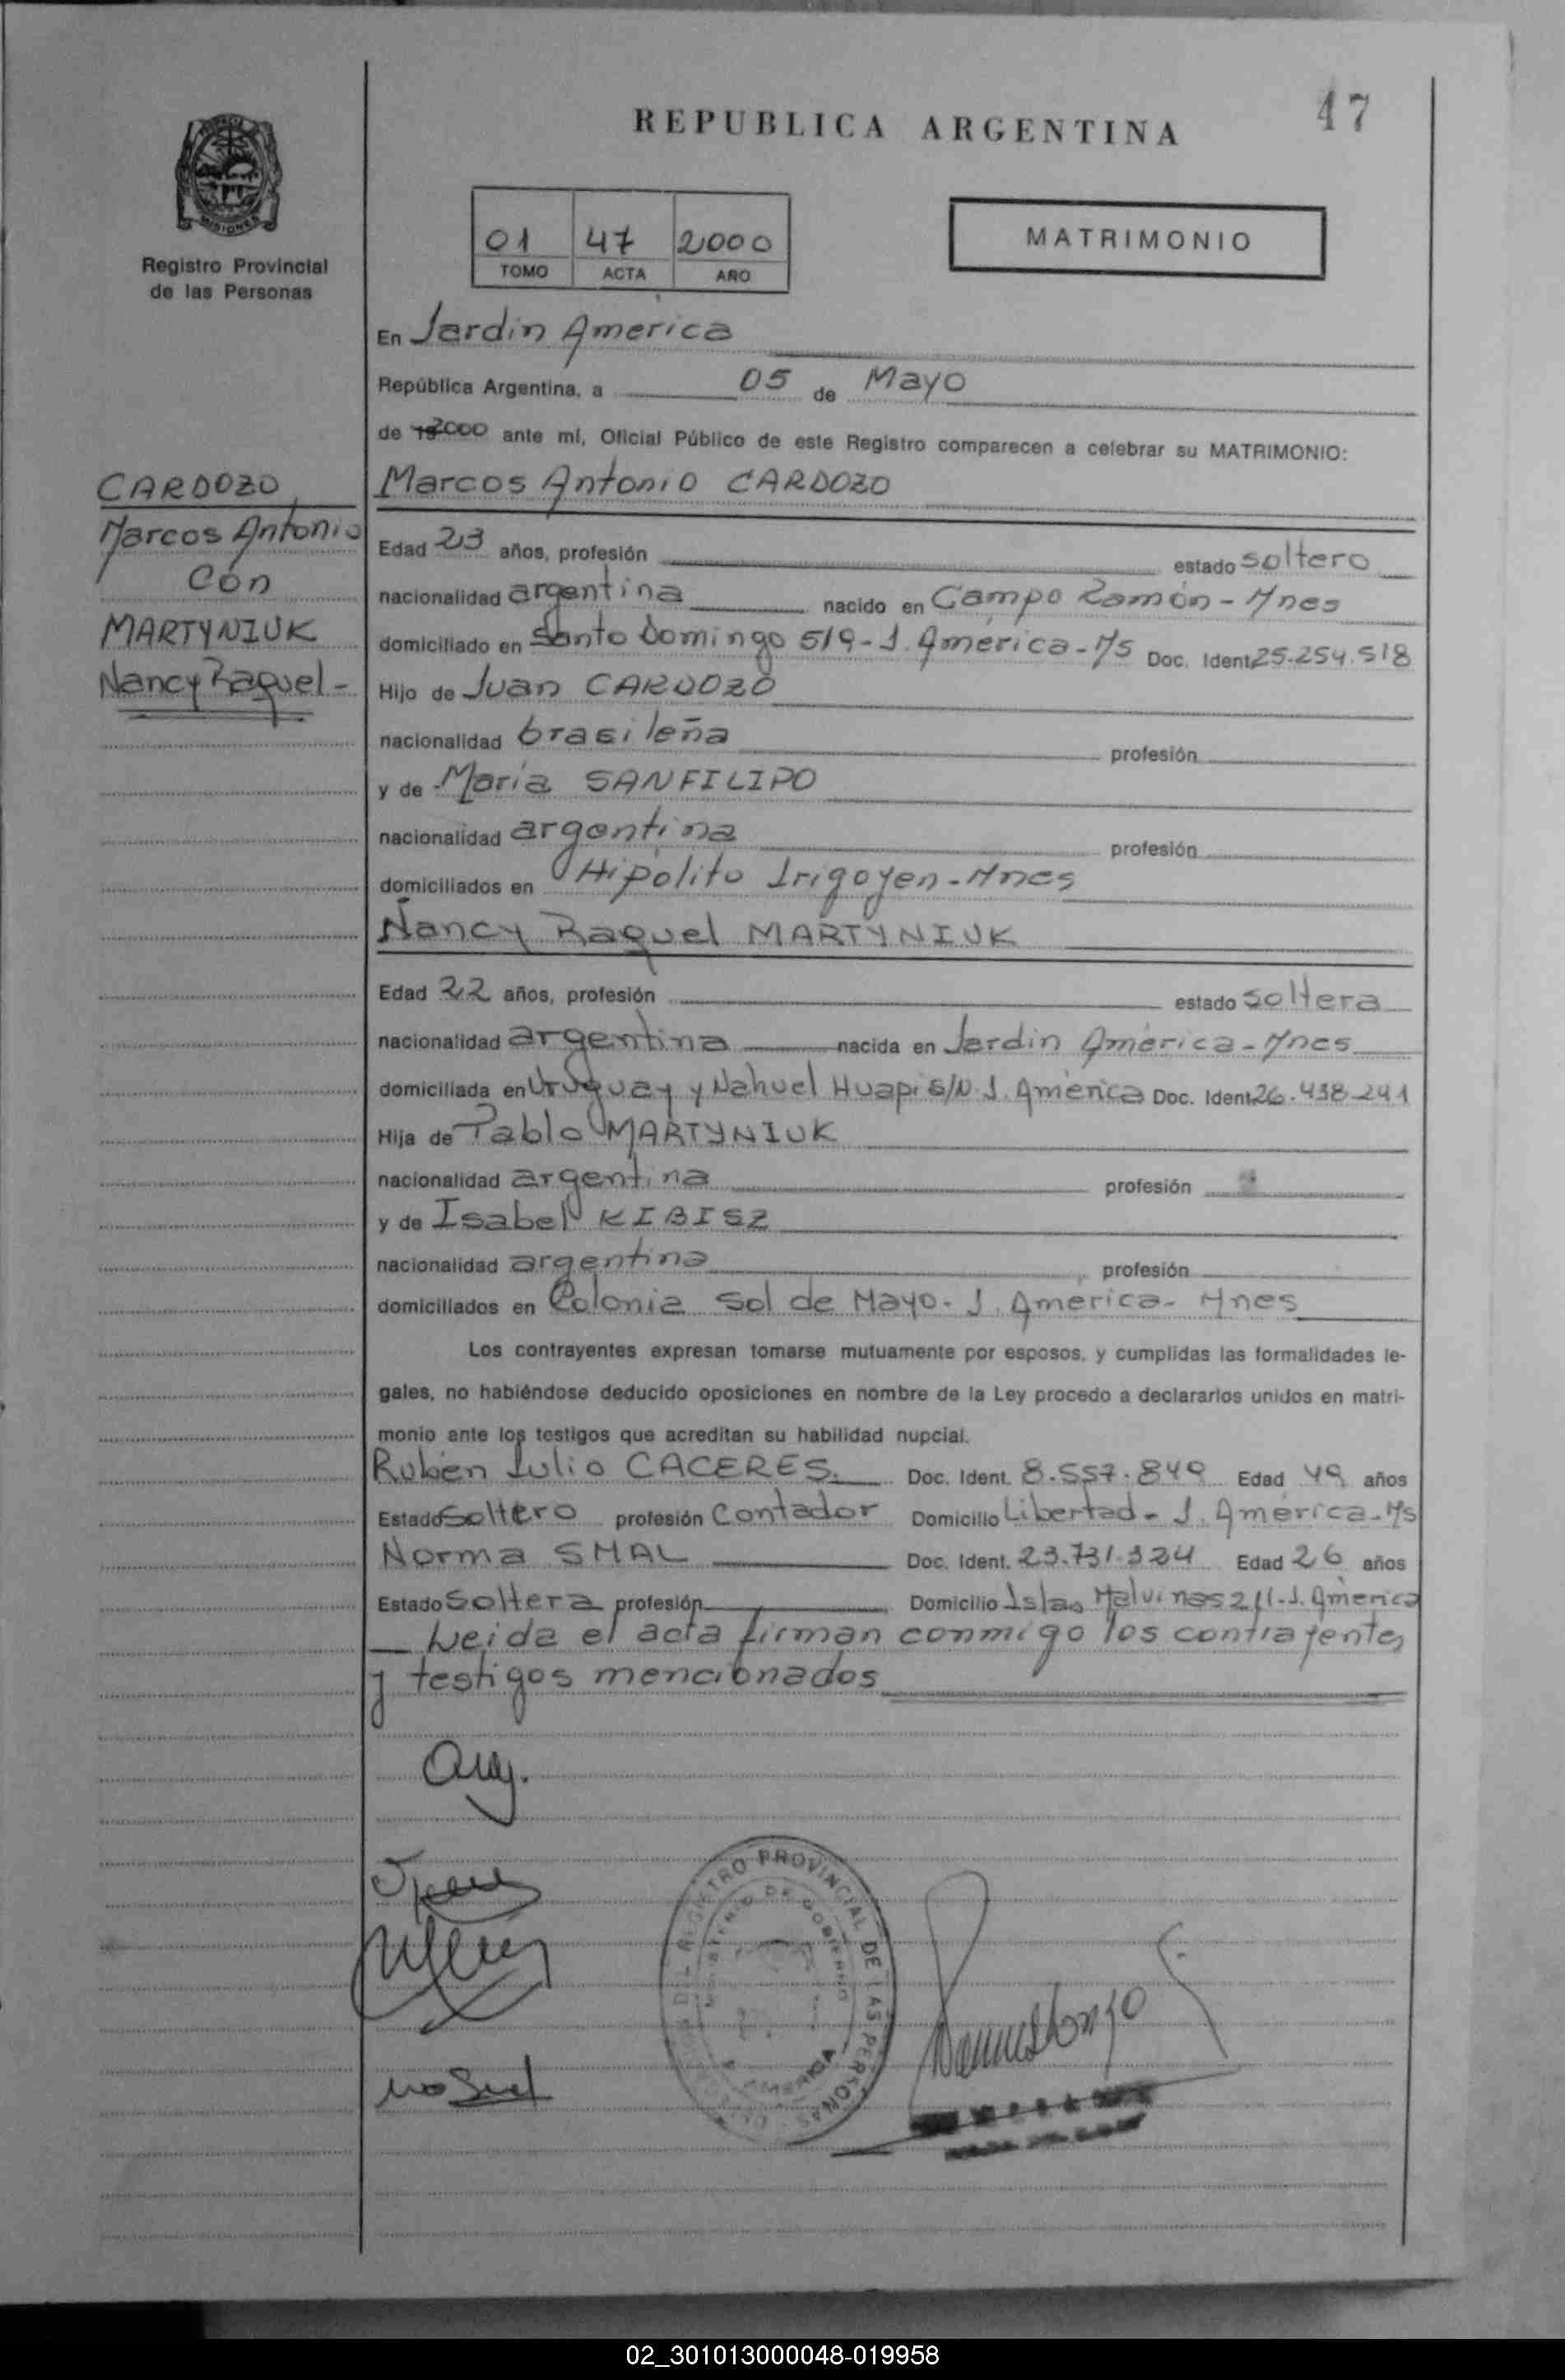 47
REPUBLICA ARGENTINA
01 47 2000
TOMO ACTA AÑO
MATRIMONIO
MISIONES
Registro Provincial
de las Personas
En Jardin America
República Argentina, a 05 de Mayo
de 2000 ante mí, Oficial Público de este Registro comparecen a celebrar su MATRIMONIO:
CARDOZO
Marcos Antonio
Con
MARTYNIUK
Nancy Raquel-
Marcos Antonio CARDOZO
Edad 23 años, profesión estado soltero
nacionalidad argentina nacido en Campo Ramón - Mnes
domiciliado en Santo Domingo 519 - J. América - Ms Doc. Ident 25.254.518
Hijo de Juan CARDOZO
nacionalidad brasileña profesión
y de María SANFILIPO
nacionalidad argentina profesión
domiciliados en Hipólito Irigoyen - Mnes
Nancy Raquel MARTYNIUK
Edad 22 años, profesión estado soltera
nacionalidad argentina nacida en Jardin América - Mnes
domiciliada en Uruguay y Nahuel Huapi S/N. J. América Doc. Ident 26.438.241
Hija de Pablo MARTYNIUK
nacionalidad argentina profesión
y de Isabel KIBISZ
nacionalidad argentina profesión
domiciliados en Colonia Sol de Mayo - J. America - Mnes
Los contrayentes expresan tomarse mutuamente por esposos, y cumplidas las formalidades le-
gales, no habiéndose deducido oposiciones en nombre de la Ley procedo a declararlos unidos en matri-
monio ante los testigos que acreditan su habilidad nupcial.
Rubén Julio CACERES. Doc. Ident. 8.557.849 Edad 49 años
Estado Soltero profesión Contador Domicilio Libertad - J. América - Ms
Norma SMAL Doc. Ident. 23.731.324 Edad 26 años
Estado Soltera profesión Domicilio Islas Malvinas 211 - J. América
Leida el acta firman conmigo los contrayentes
y testigos mencionados
REGISTRO PROVINCIAL DE LAS PERSONAS
MINISTERIO DE GOBIERNO
AMERICA
02_301013000048-019958